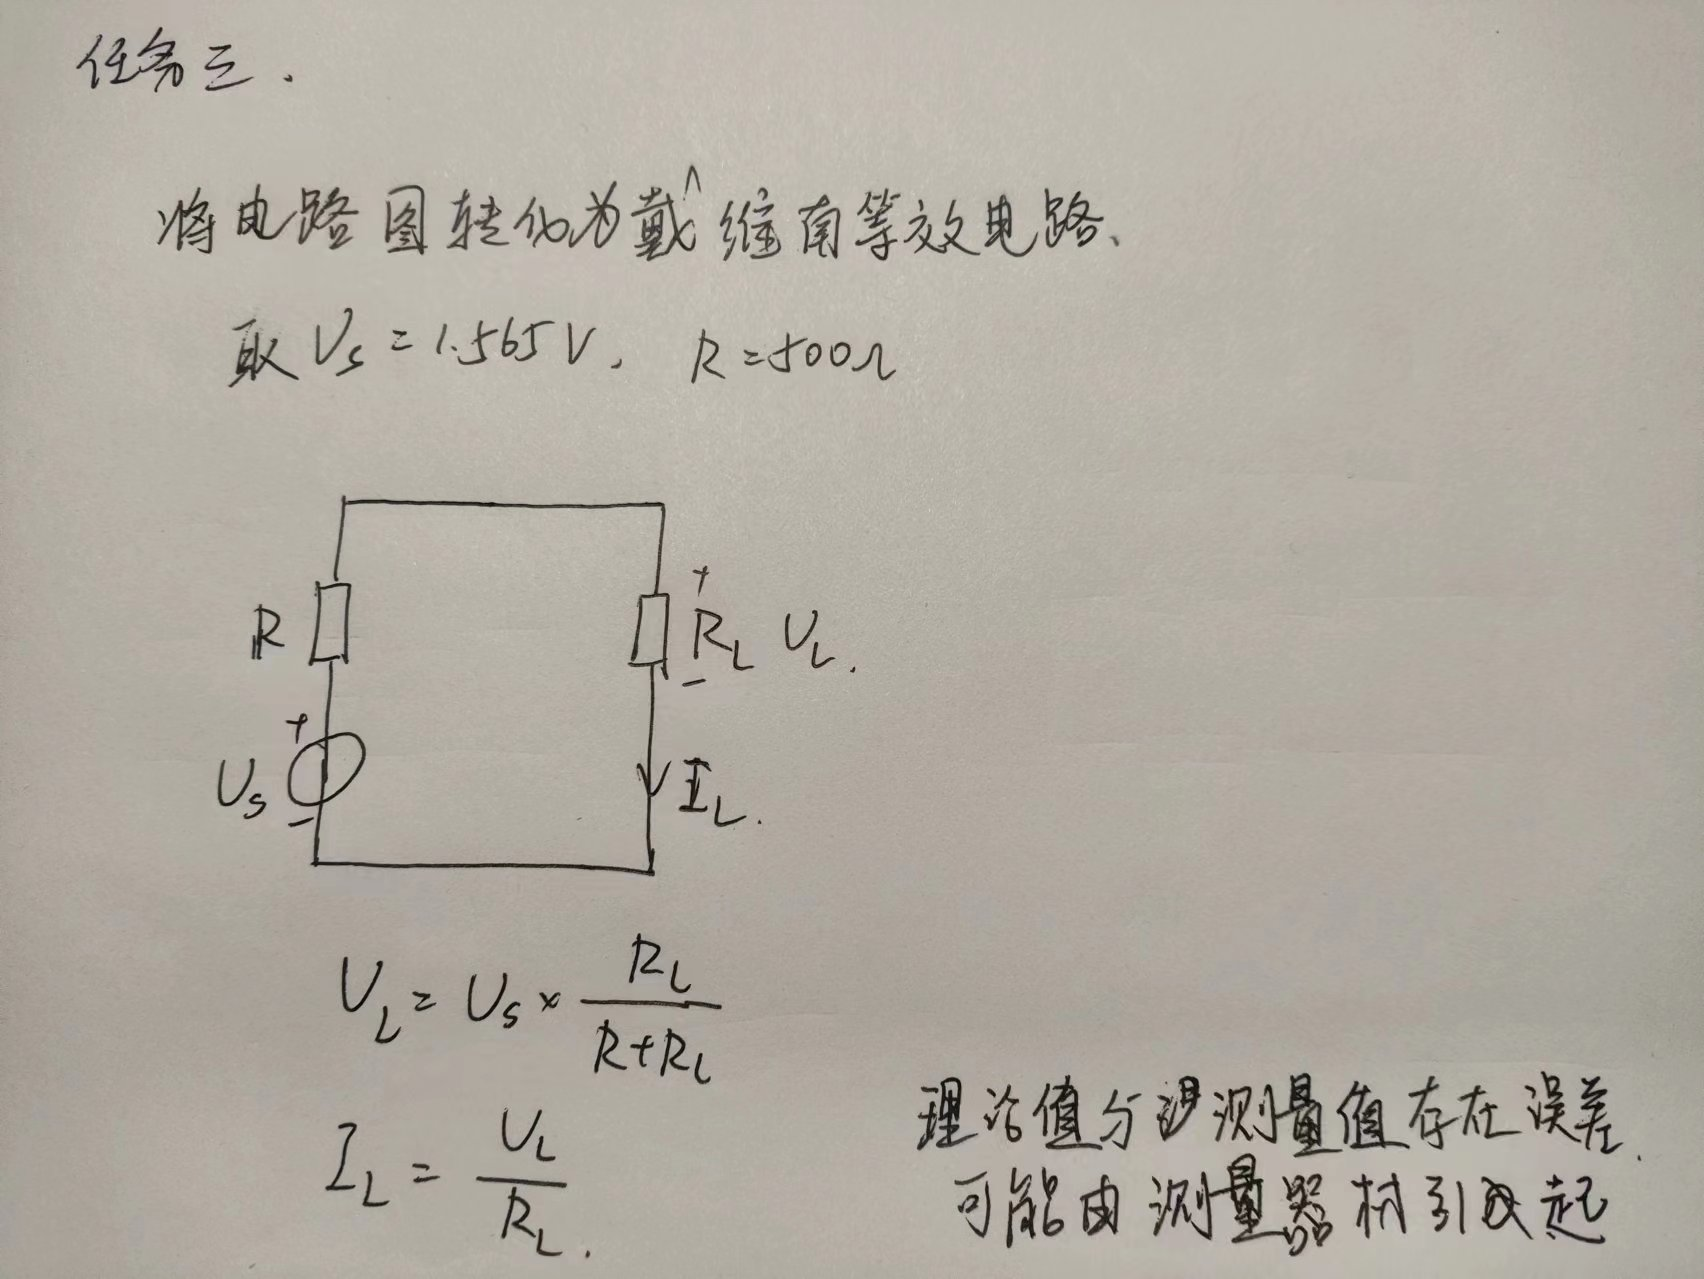 任务三.
将电路图转化为戴^维南等效电路、
取 Us = 1.565V, R = 500Ω
+
R
RL UL.
-
+
Us
IL.
-
UL = Us × RL / (R+RL)
IL = UL / RL.
理论值与测量值存在误差.
可能由测量器材引起